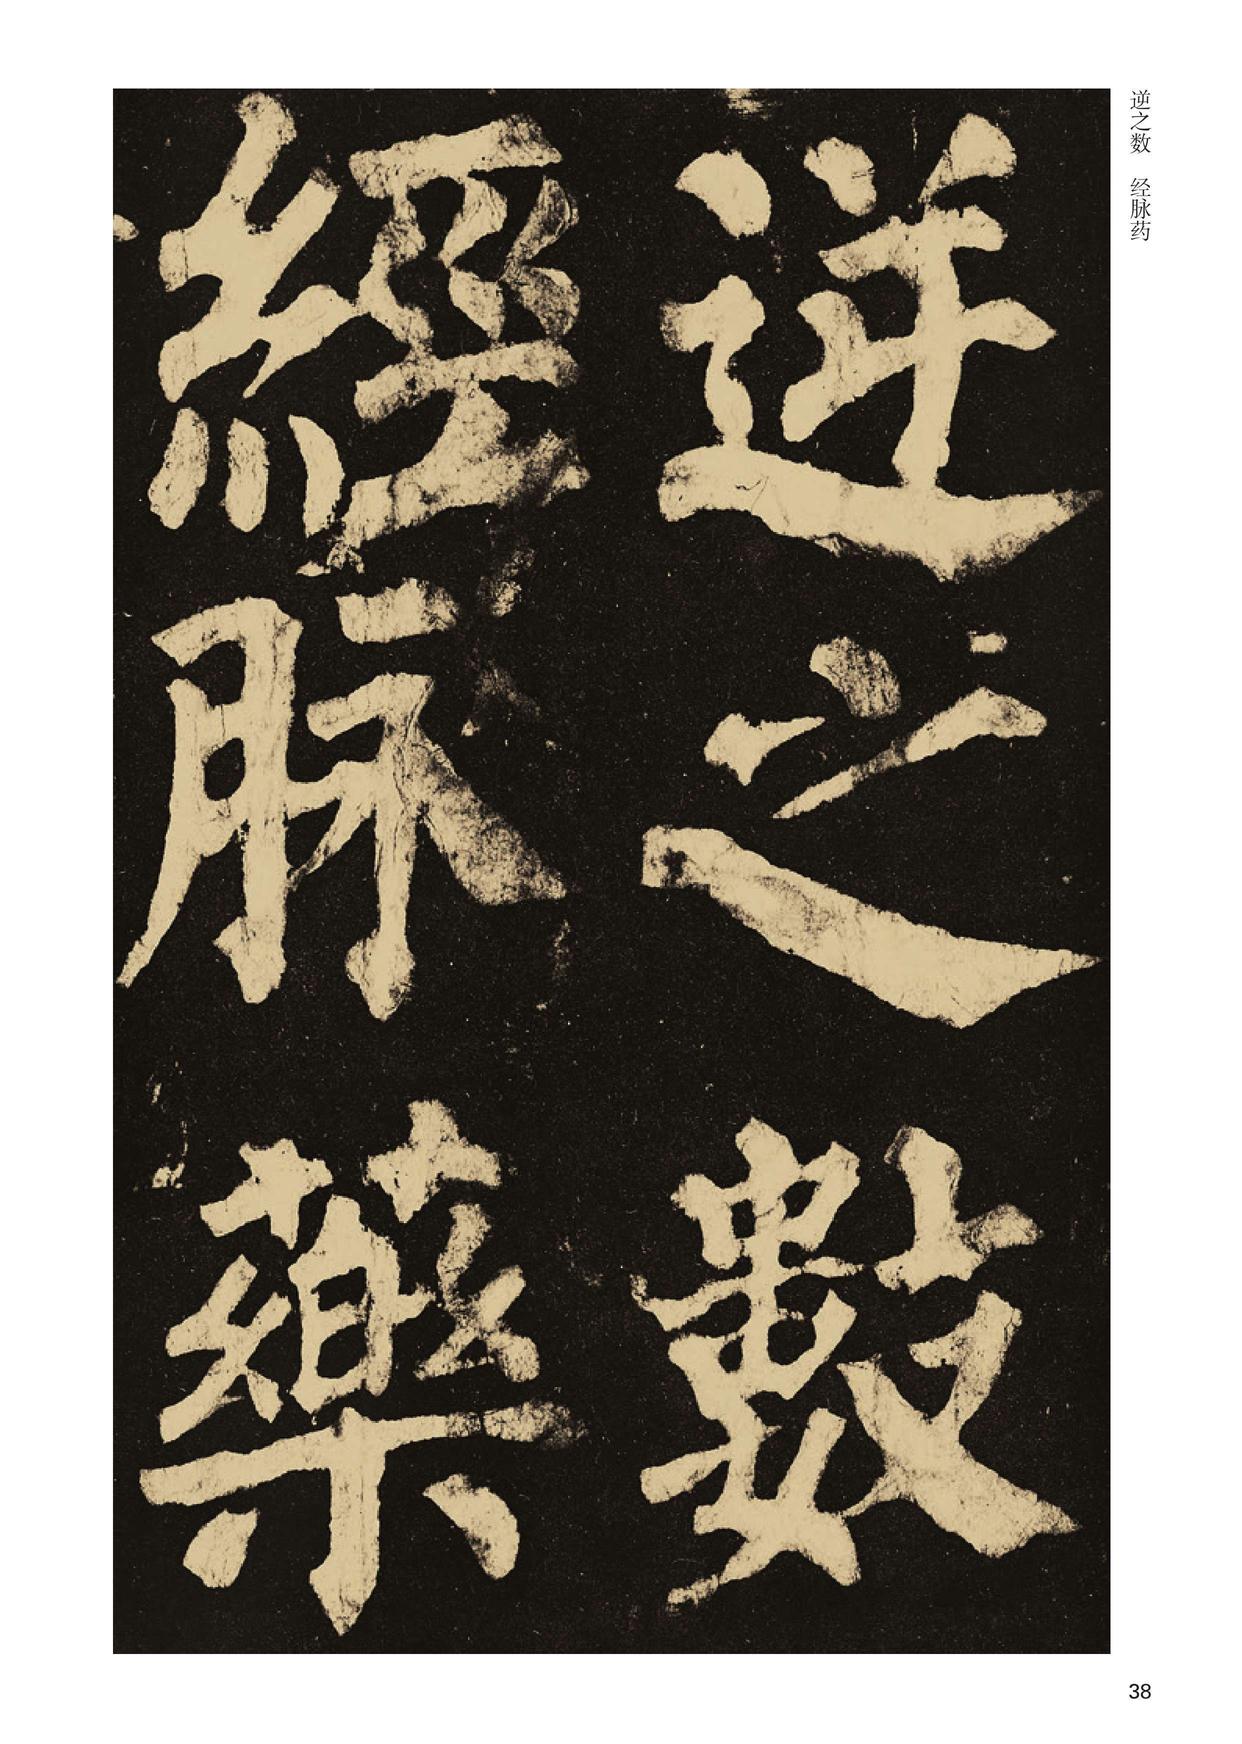 逆之数 经脉药
逆之數
經脉藥
38